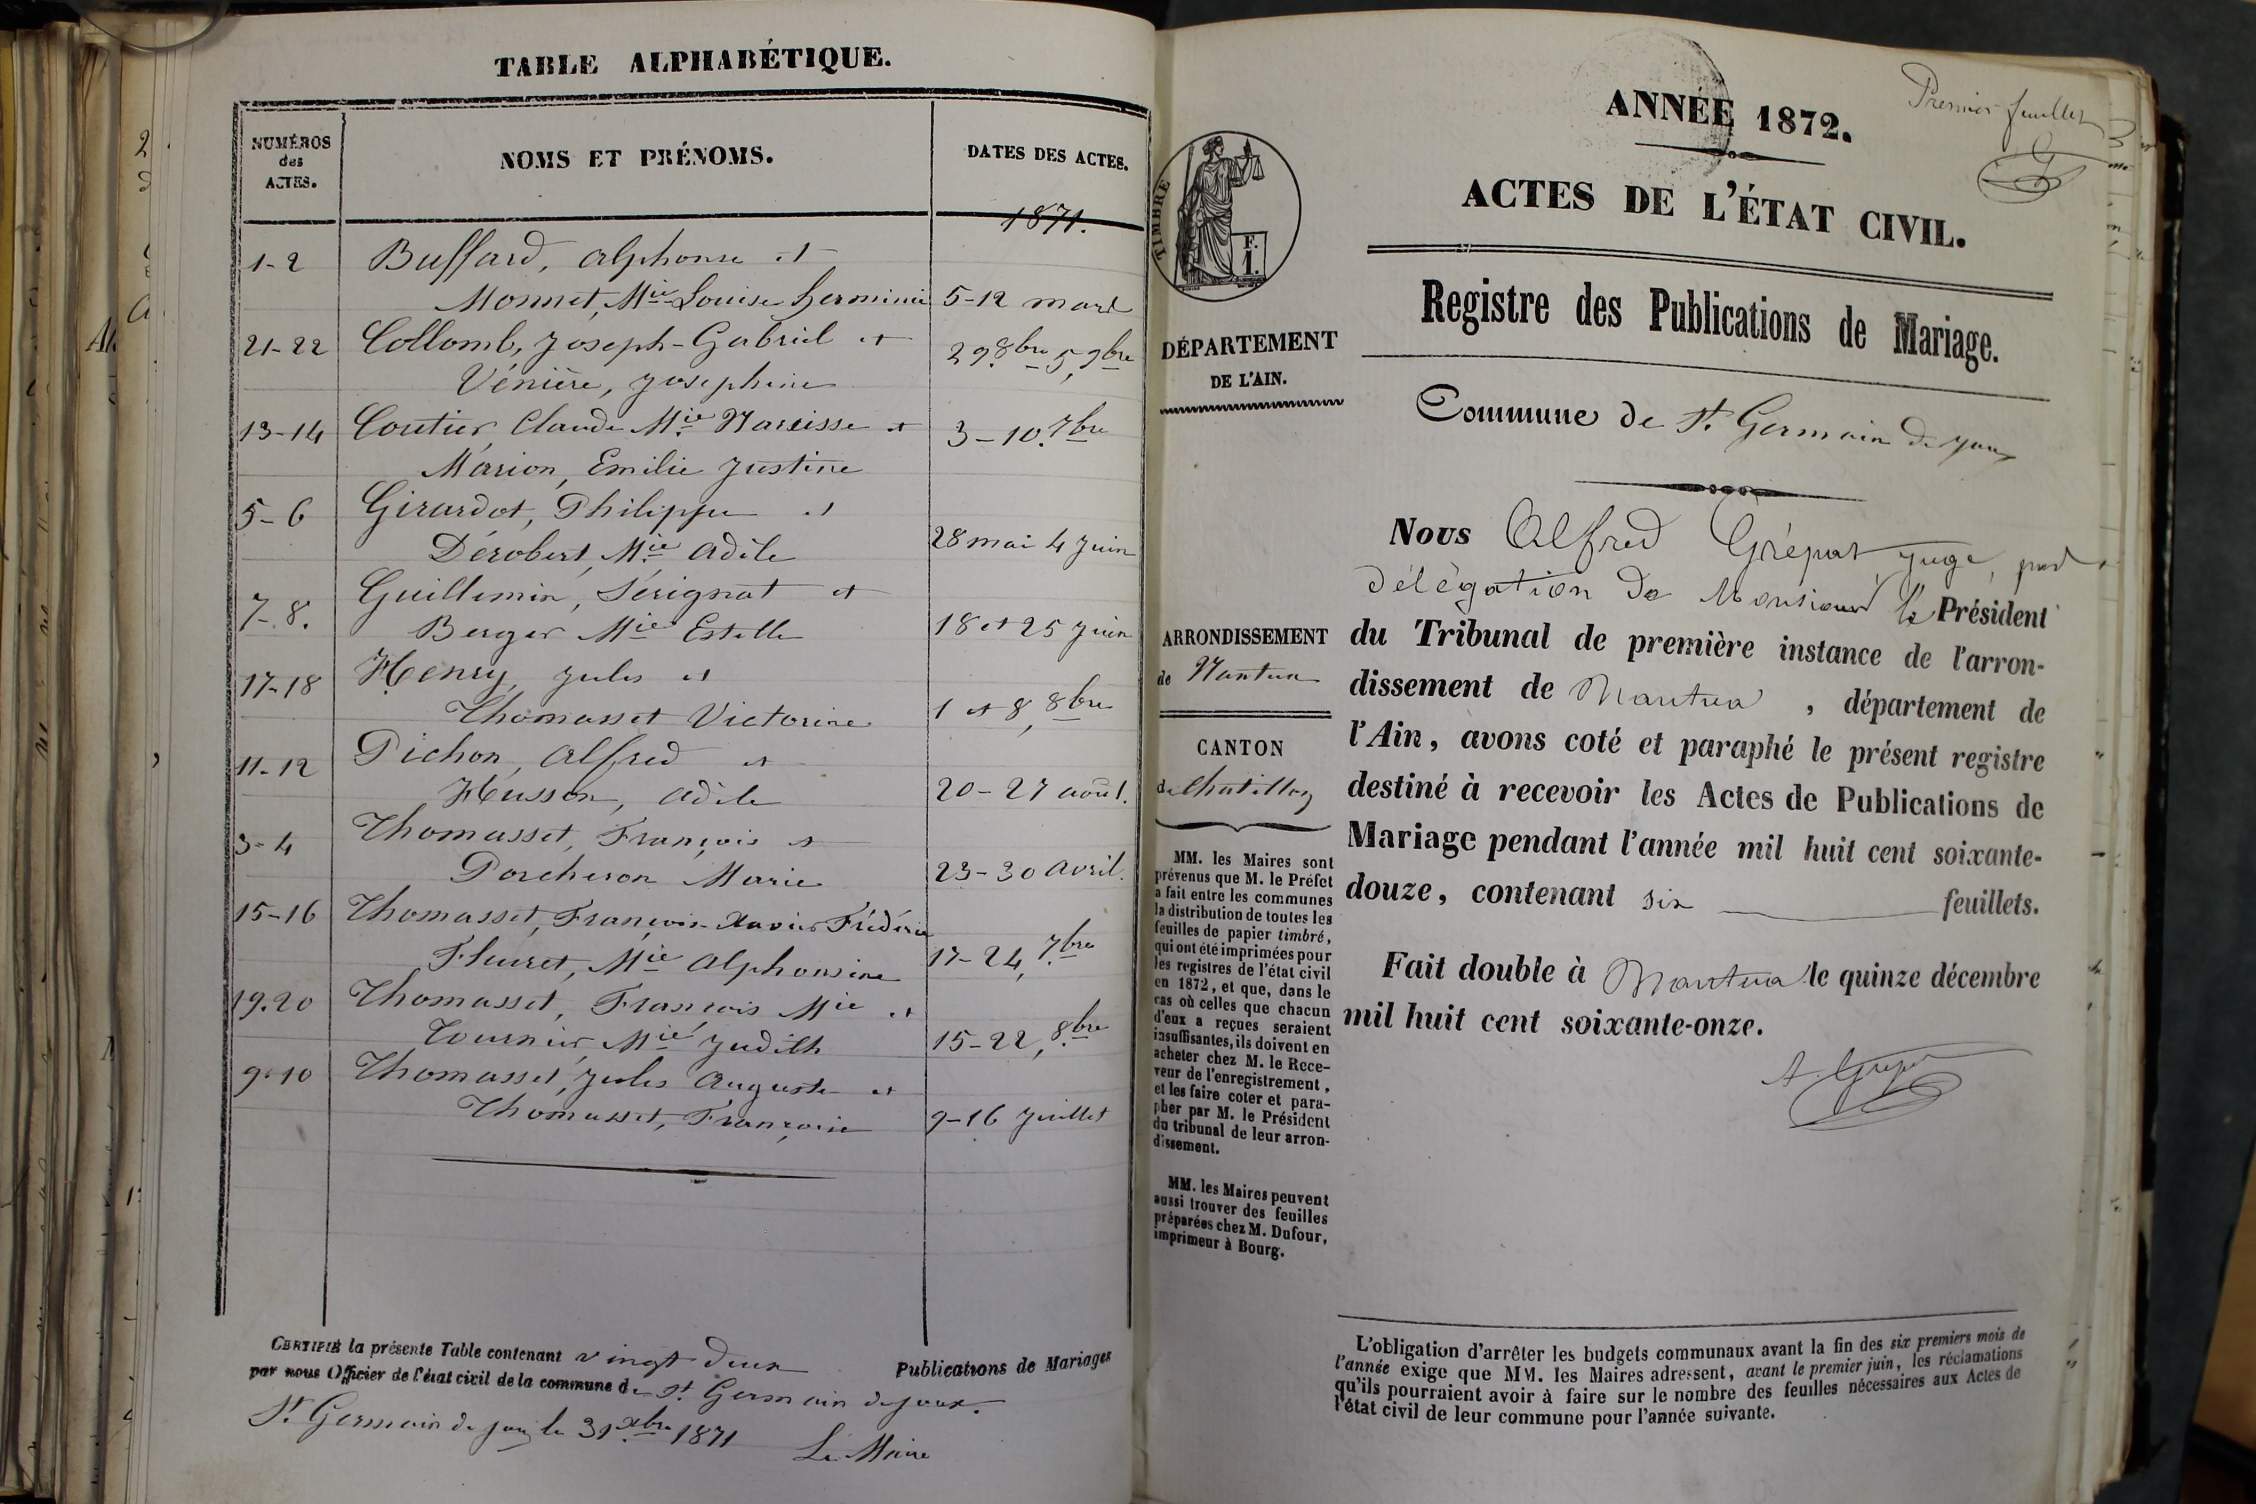 TABLE ALPHABÉTIQUE.
NUMÉROS
des
ACTES.
NOMS ET PRÉNOMS.
DATES DES ACTES.
1871.
1-2 Buffard, Alphonse et
Monnet, Mie Louise Herminie 5-12 mars
21-22 Collomb, Joseph-Gabriel et 29. 8bre 5, 9bre
Vénière, Josephine
13-14 Coutier, Claude Mie Narcisse et 3-10. 7bre
Marion, Emilie Justine
5-6 Girardot, Philippe et
Dérobert, Mie Adèle 28 mai 4 juin
7-8. Guillemin, Sérignat et
Berger Mie Estelle 18 et 25 juin
17-18 Henry, Jules et
Thomasset Victorine 1 et 8, 8bre
11-12 Pichon, Alfred et
Husson, Adèle 20-27 août.
3-4 Thomasset, François et
Porcheron Marie 23-30 avril.
15-16 Thomasset, François-Xavier Frédéric
Fleuret, Mie Alphonsine 17-24, 7bre
19.20 Thomasset, François Mie et
Tournier, Mie Judith 15-22, 8bre
9-10 Thomasset, Jules Auguste et
Thomasset, Françoise 9-16 juillet
CERTIFIÉ la présente Table contenant vingt deux Publications de Mariages
par nous Officier de l'état civil de la commune de St Germain de joux.
St Germain de joux le 31 xbre 1871
Le Maire
Premier feuillet
ANNÉE 1872.
ACTES DE L'ÉTAT CIVIL.
Registre des Publications de Mariage.
Commune de St Germain de joux
TIMBRE
F.
I.
DÉPARTEMENT
DE L'AIN.
ARRONDISSEMENT
de Nantua
CANTON
de Chatillon
MM. les Maires sont
prévenus que M. le Préfet
a fait entre les communes
la distribution de toutes les
feuilles de papier timbré,
qui ont été imprimées pour
les registres de l'état civil
en 1872, et que, dans le
cas où celles que chacun
d'eux a reçues seraient
insuffisantes, ils doivent en
acheter chez M. le Rece-
veur de l'enregistrement,
et les faire coter et para-
pher par M. le Président
du tribunal de leur arron-
dissement.
MM. les Maires peuvent
aussi trouver des feuilles
préparées chez M. Dufour,
imprimeur à Bourg.
Nous Alfred Grépat, juge, par
délégation de Monsieur le Président
du Tribunal de première instance de l'arron-
dissement de Nantua, département de
l'Ain, avons coté et paraphé le présent registre
destiné à recevoir les Actes de Publications de
Mariage pendant l'année mil huit cent soixante-
douze, contenant six feuillets.
Fait double à Nantua le quinze décembre
mil huit cent soixante-onze.
L'obligation d'arrêter les budgets communaux avant la fin des six premiers mois de
l'année exige que MM. les Maires adressent, avant le premier juin, les réclamations
qu'ils pourraient avoir à faire sur le nombre des feuilles nécessaires aux Actes de
l'état civil de leur commune pour l'année suivante.